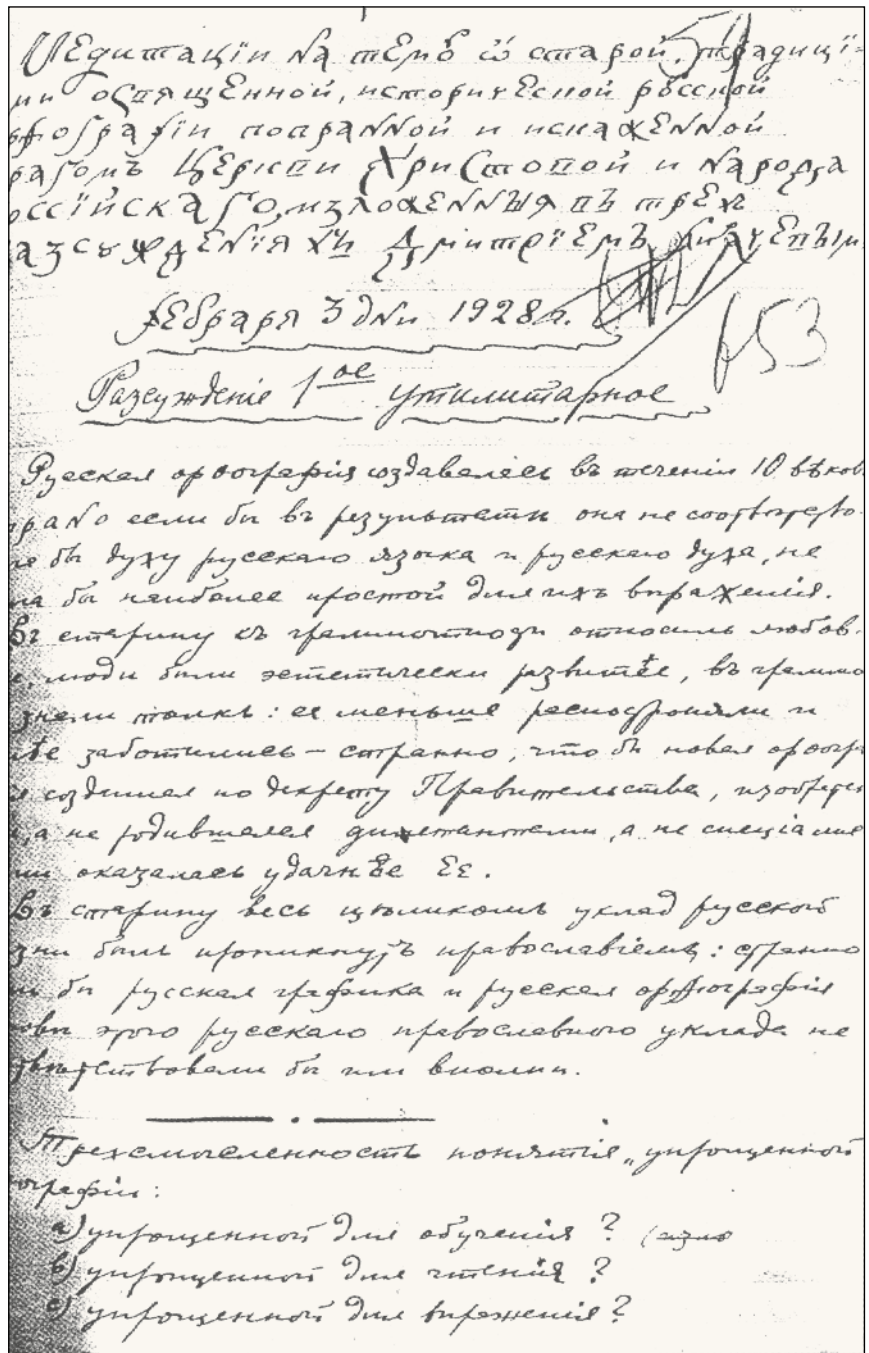 Медитацiи на тему ѿ старой, традицi-
ми освященной, исторической русской
фографiи попранной и искаженной
врагомъ Церкви Христовой и народа
оссiйскаго, изложенныя въ трех
азсужденiяхъ Дмитрiемъ Лихачевым
февраря 3 дни 1928 г.
653
Разсужденiе 1ое утилитарное
Русская орѳографiя создавалась въ теченiи 10 вѣков
рано если бы въ результатѣ она не соответство-
бы духу русскаго языка и русскаго духа, не
ла бы наиболее простой для ихъ выраженiя.
Въ старину къ грамотности относились любов-
люди были эстетически развитѣе, въ грамо
знали толкъ: ее меньше распостроняли и
ѣе заботились – странно, что бы новая орѳогра
созданая по декрету Правительства, изобретен
а не родившаяся дилетантами, а не спецiали
ми оказалась удачнѣе ее.
Въ старину весь цѣликомъ уклад русской
зни былъ проникнутъ православiемъ: странно
бы русская графика и русская орѳографiя
овы этого русскаго православнаго уклада не
тствовали бы им вполнѣ.
Трехсмысленность понятiя „упрощенной
ографiи:
а) упрощенной для обученiя ?
b) упрощенной для чтенiя ?
с) упрощенной для выраженiя ?